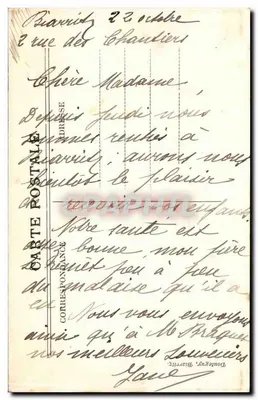 Biarritz 22 octobre
2 rue des Chantiers
Chère Madame,
Depuis jeudi nous
sommes rentrés à
Biarritz; aurons nous
bientôt le plaisir
de enfants
Notre santé est
bonne, mon père
peu à peu
du malaise qu'il a
eu. Nous vous envoyons
ainsi qu'à Mr
nos meilleurs souvenirs
CARTE POSTALE
CORRESPONDANCE
ADRESSE